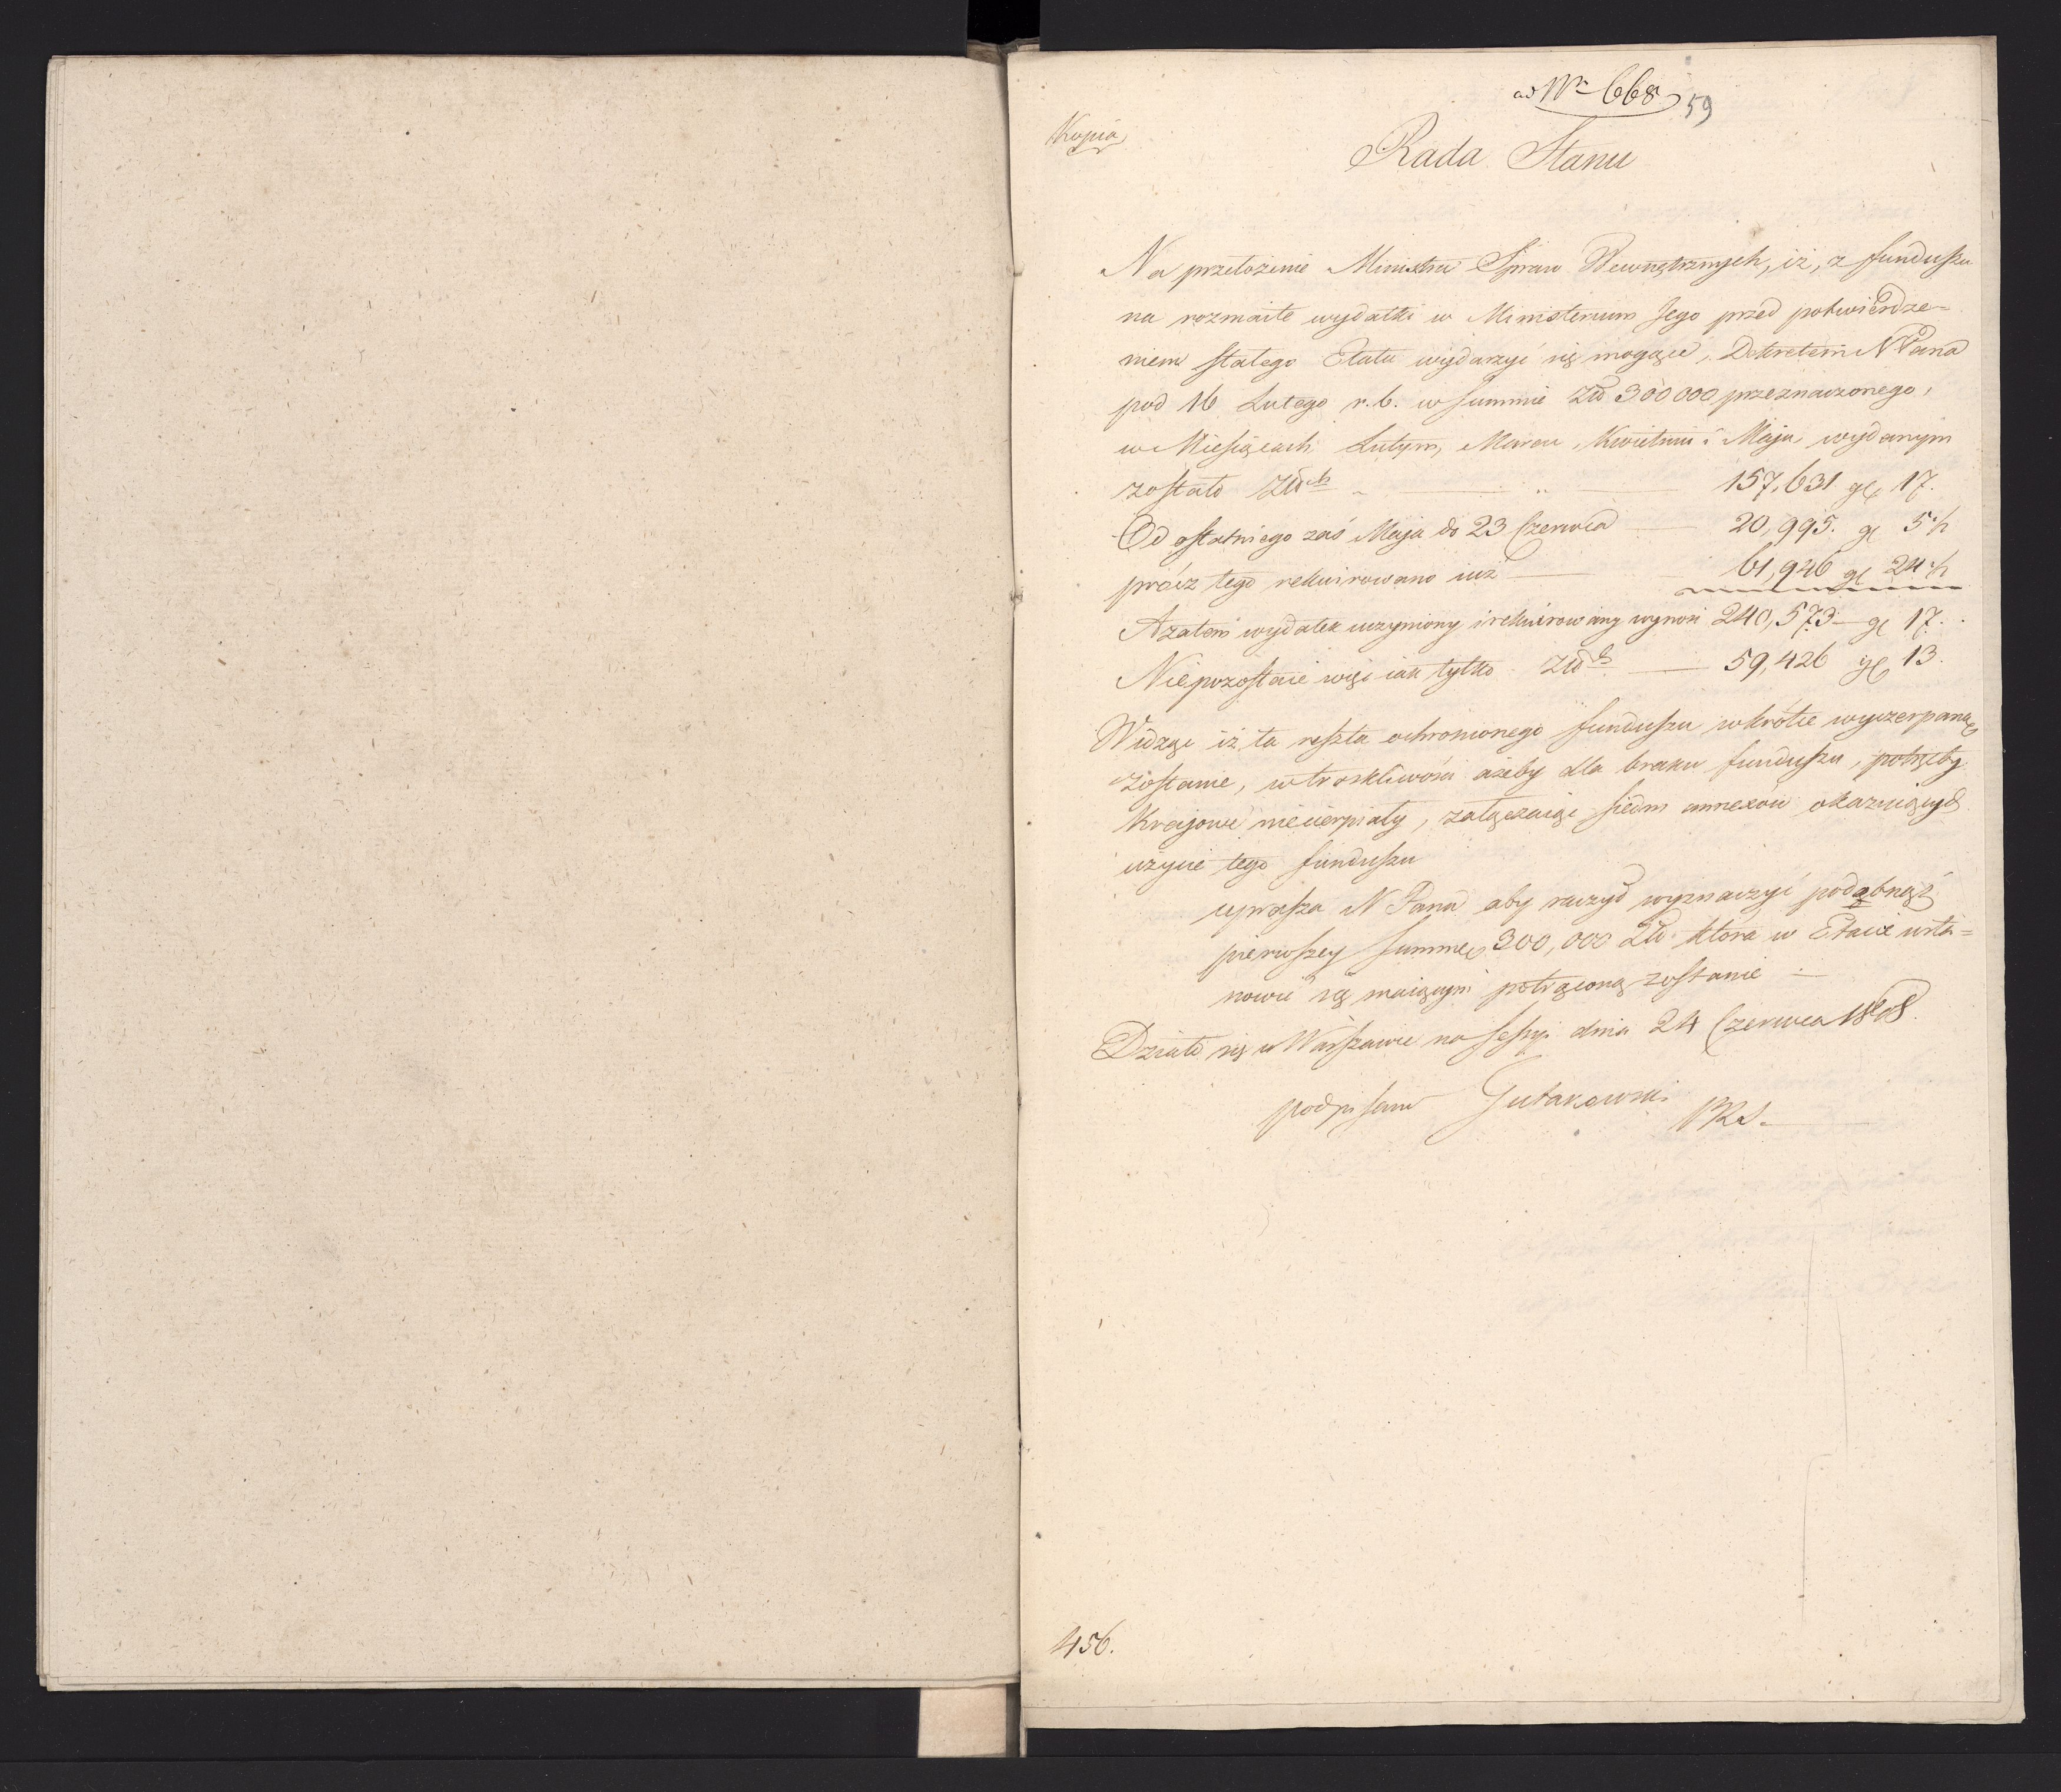 ad Nr 668
59
Kopia
Rada Stanu
Na przełożenie Ministra Spraw Wewnętrznych, iż, z funduszu
na rozmaite wydatki w Ministerium Jego przed potwierdze-
niem stałego Etatu wydarzyć się mogące, Dekretem N Pana
pod 16 Lutego r. b. w summie Złł 300 000 przeznaczonego,
w Miesiącach Lutym, Marcu, Kwietniu i Maju wydanym
zostało Złłch " 157,631 gr 17.
Od ostatniego zaś Maja do 23 Czerwca 20,995. gr 5 ½
prócz tego rekwirowano iuż 61,946 gr 24 ½
A zatem wydatek uczyniony i rekwirowany wynosi 240,573 gr 17.
Niepozostaie więc iak tylko Złłch 59,426 gr 13.
Widząc iż ta reszta ochronionego funduszu wkrótce wyczerpaną
zostanie, w troskliwości ażeby dla braku funduszu, potrzeby
Krajowe niecierpiały, załączaiąc siedm annexów okazuiących
użycie tego funduszu
uprasza N Pana aby raczył wyznaczyć podobnąż
pierwszey summę 300,000 Złł która w Etacie usta=
nowić się maiącym potrąconą zostanie
Działo się w Warszawie na Sessyi dnia 24 Czerwca 1808.
podpisano Gutakowski
PRS.
456.